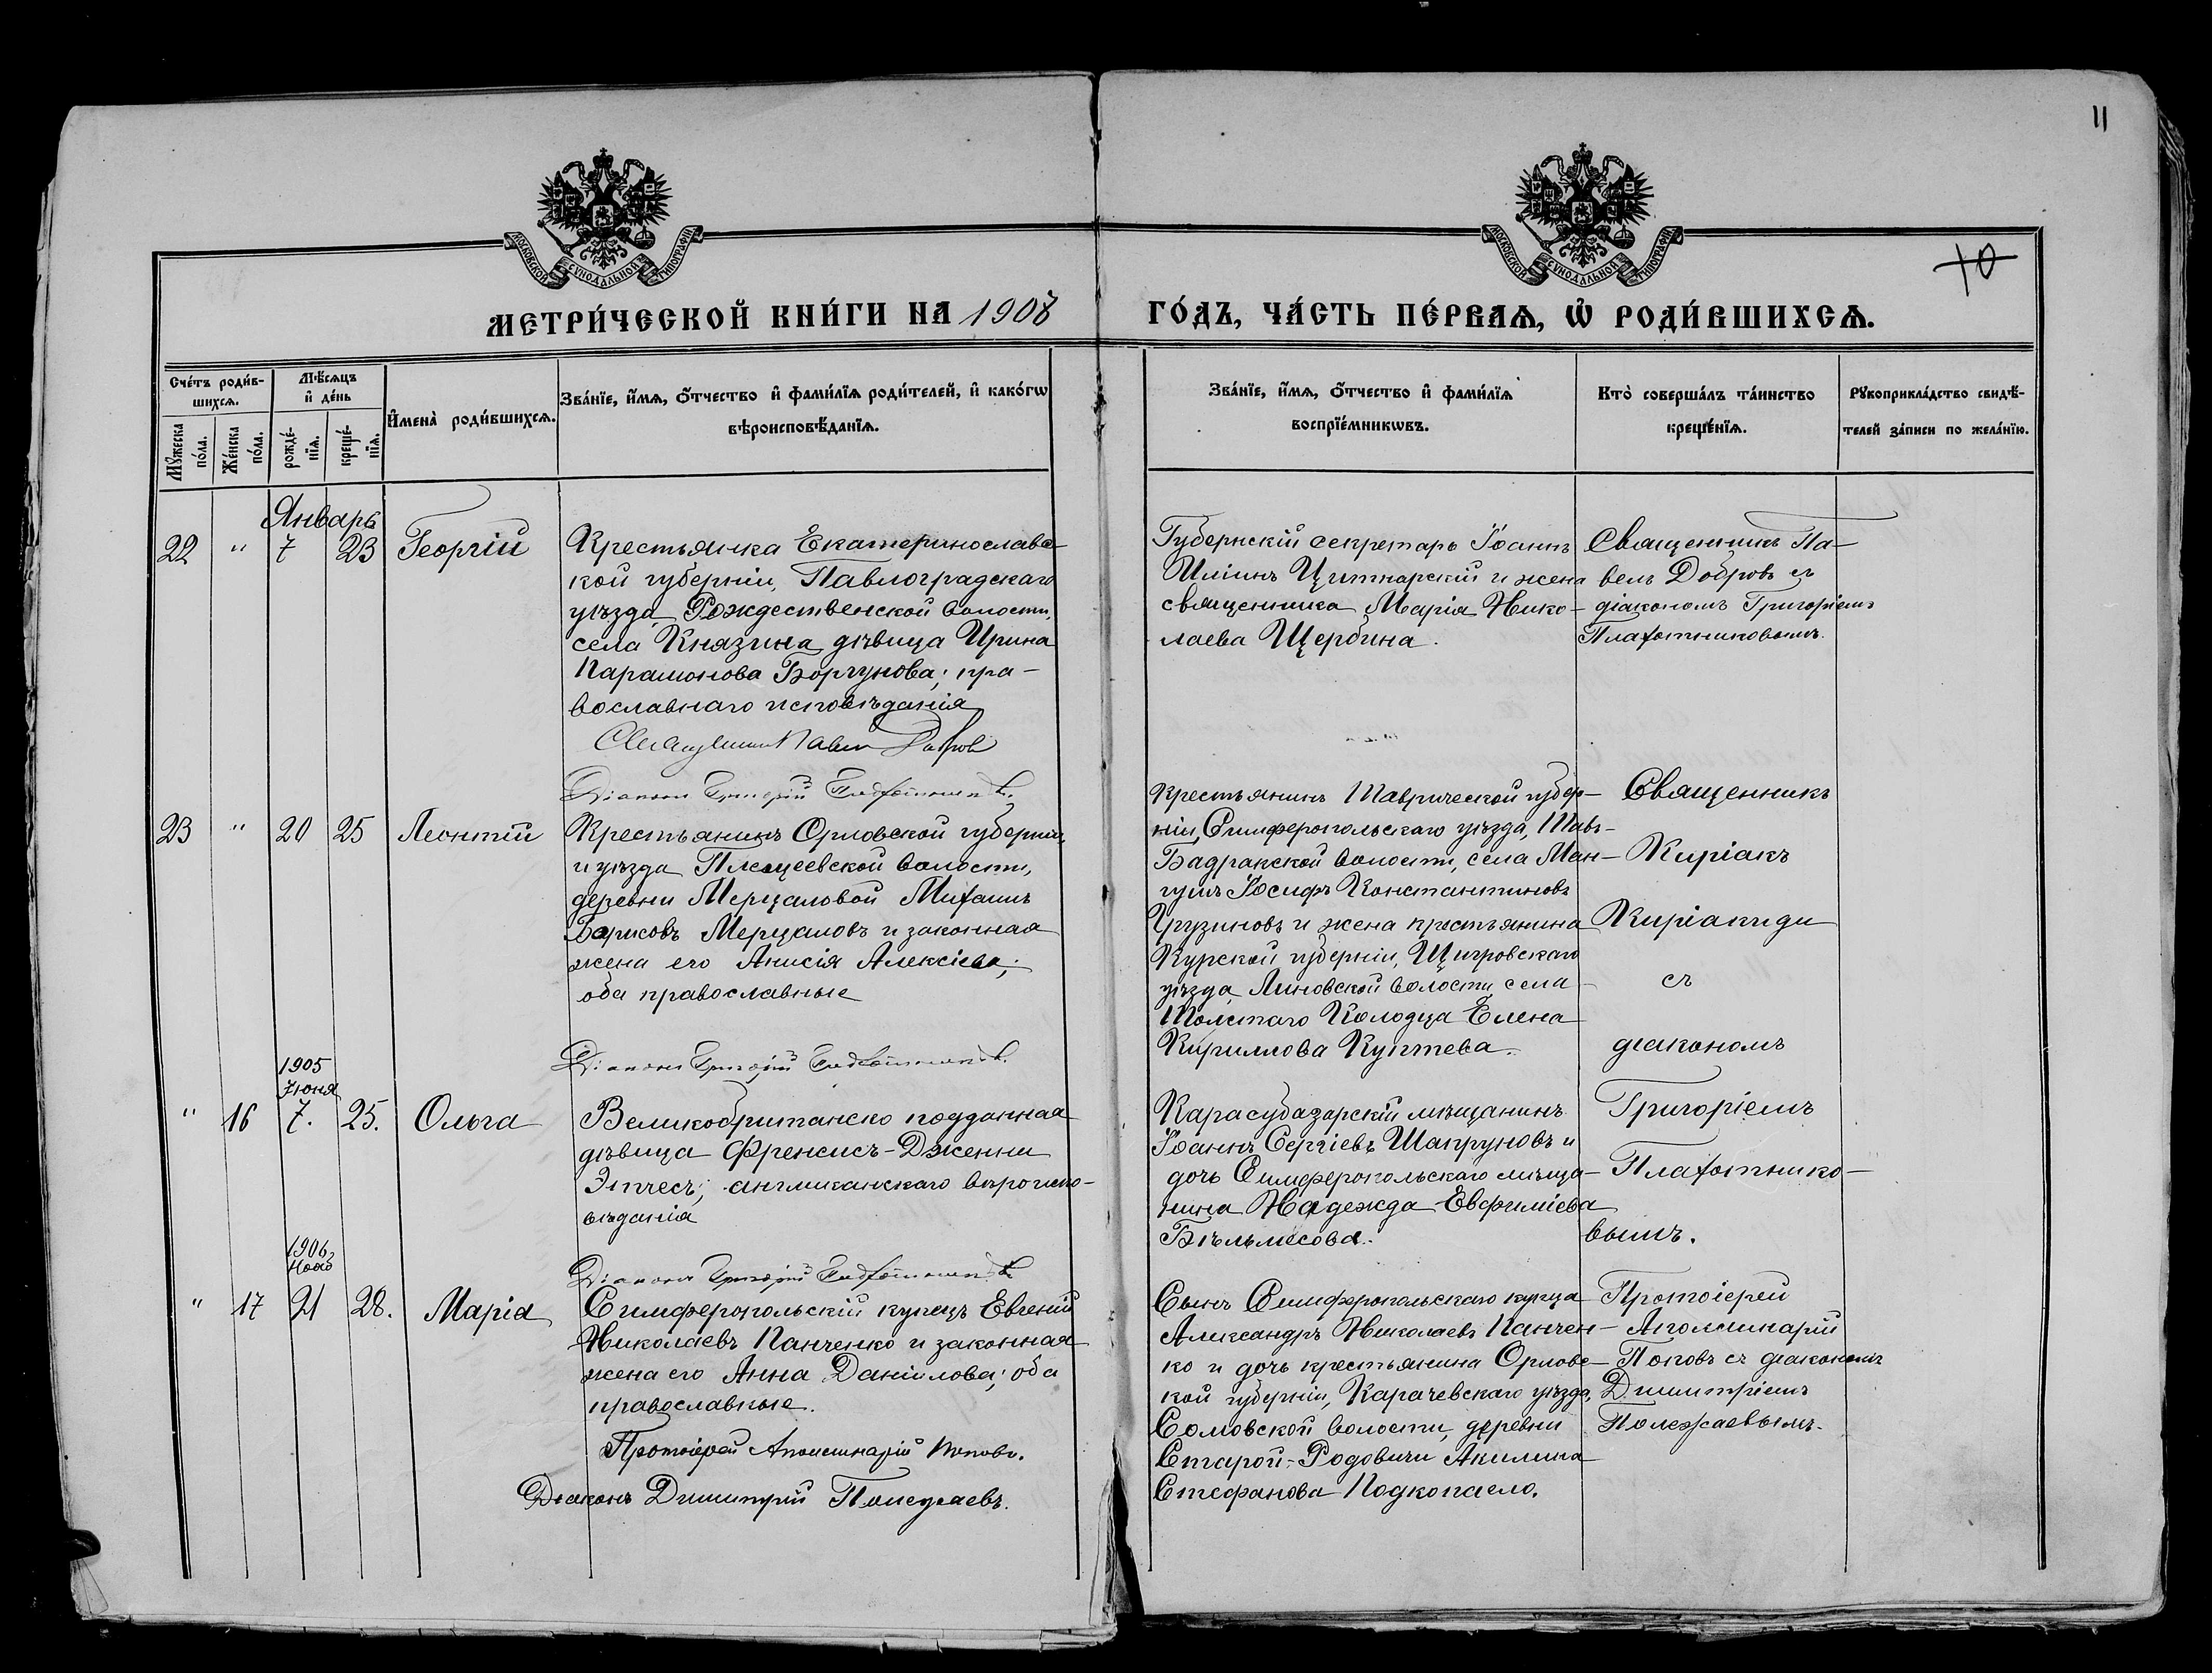 11
10
МОСКОВСКОЙ СѴНОДАЛЬНОЙ ТИПОГРАФІИ
МОСКОВСКОЙ СѴНОДАЛЬНОЙ ТИПОГРАФІИ
МЕТРИ́ЧЕСКОЙ КНИ́ГИ НА 1907
ГО́ДЪ, ЧА́СТЬ ПЕ́РВАѦ, Ѡ҆ РОДИ́ВШИХСѦ.
Сче́тъ роди́в-
шихсѧ.
Мꙋ́жеска
по́ла.
Же́нска
по́ла.
Мѣ́сѧцъ
и҆ де́нь
рожде́-
нїѧ.
креще́-
нїѧ.
И҆мена̀ роди́вшихсѧ.
Зва́нїе, и҆́мѧ, ѻ҆́тчество и҆ фами́лїѧ роди́телей, и҆ како́гѡ
вѣроисповѣ́данїѧ.
Зва́нїе, и҆́мѧ, ѻ҆́тчество и҆ фами́лїѧ
воспрїе́мникѡвъ.
Кто̀ соверша́лъ та́инство
креще́нїѧ.
Рꙋкоприкла́дство свидѣ́-
телей за́писи по жела́нїю.
Январь
22 " 7 23 Георгій
Крестьянка Екатеринославс-
кой губерніи, Павлоградскаго
уѣзда, Рождественской волости,
села Князина дѣвица Ирина
Парамонова Боргунова; пра-
вославнаго исповѣданія
Священникъ Павелъ Добровъ
Діаконъ Григорій Плахотниковъ.
Губернскій секретарь Іоаннъ
Иліинъ Цитнарскій и жена
священника Марія Нико-
лаева Щербина.
Священникъ Па-
велъ Добровъ съ
діакономъ Григоріемъ
Плахотниковымъ.
23 " 20 25 Леонтій
Крестьянинъ Орловской губерніи,
и уѣзда Плещеевской волости,
деревни Мерцаловой Михаилъ
Борисовъ Мерцаловъ и законная
жена его Анисія Алексіева;
оба православные
Діаконъ Григорій Плахотниковъ.
Крестьянинъ Таврической губер-
ніи, Симферопольскаго уѣзда, Тавъ-
Бадракской волости, села Ман-
гушъ Іосифъ Константиновъ
Грузиновъ и жена крестьянина
Курской губерніи, Щигровскаго
уѣзда, Липовской волости, села
Толстаго Колодца Елена
Кириллова Куптева.
Священникъ
Киріакъ
Киріакиди
съ
діакономъ
Григоріемъ
Плахотнико-
вымъ.
1905
Іюня
" 16 7. 25. Ольга
Великобританско подданная
дѣвица Френсисъ-Дженни
Этчесъ; англиканскаго вѣроиспо-
вѣданія
Діаконъ Григорій Плахотниковъ
Карасубазарскій мѣщанинъ
Іоаннъ Сергіевъ Шапруновъ и
дочь Симферопольскаго мѣща-
нина Надежда Евфиміева
Бѣльмесова.
1906
Нояб
" 17 21 28. Марія
Симферопольскій купецъ Евгеній
Николаевъ Панченко и законная
жена его Анна Даніилова; оба
православные.
Протоіерей Аполлинарій Поповъ.
Діаконъ Димитрій Полежаевъ.
Сынъ Симферопольскаго купца
Александръ Николаевъ Панчен-
ко и дочь крестьянина Орловс-
кой губерніи, Карачевскаго уѣзда,
Сомовской волости, деревни
Старой-Родовичи Акилина
Стефанова Подкопаело.
Протоіерей
Аполлинарій
Поповъ съ діакономъ
Димитріемъ
Полежаевымъ.